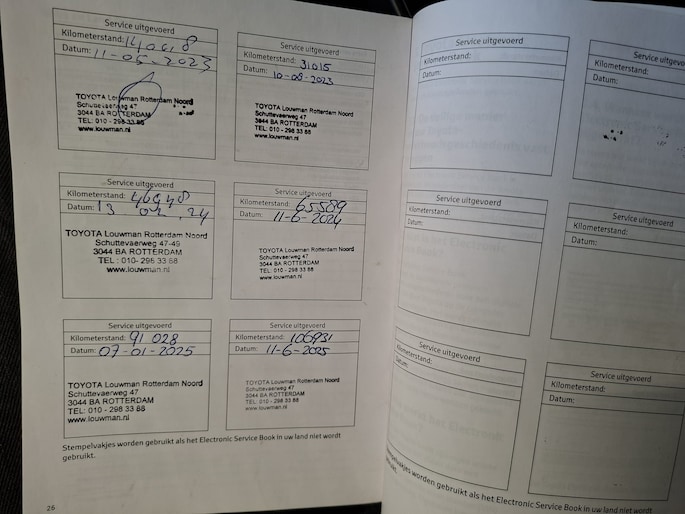 Service uitgevoerd
Kilometerstand: 14068
Datum: 11-05-2023
TOYOTA Louwman Rotterdam Noord
Schuttevaerweg 47
3044 BA ROTTERDAM
TEL: 010 - 298 33 88
www.louwman.nl
Service uitgevoerd
Kilometerstand: 31015
Datum: 10-08-2023
TOYOTA Louwman Rotterdam Noord
Schuttevaerweg 47
3044 BA ROTTERDAM
TEL: 010 - 298 33 88
www.louwman.nl
Service uitgevoerd
Kilometerstand: 46948
Datum: 13 02 . 24
TOYOTA Louwman Rotterdam Noord
Schuttevaerweg 47-49
3044 BA ROTTERDAM
TEL : 010- 298 33 88
www.louwman.nl
Service uitgevoerd
Kilometerstand: 65589
Datum: 11-6-2024
TOYOTA Louwman Rotterdam Noord
Schuttevaerweg 47
3044 BA ROTTERDAM
TEL: 010 - 298 33 88
www.louwman.nl
Service uitgevoerd
Kilometerstand: 91 028
Datum: 07-01-2025
TOYOTA Louwman Rotterdam Noord
Schuttevaerweg 47
3044 BA ROTTERDAM
TEL: 010 - 298 33 88
www.louwman.nl
Service uitgevoerd
Kilometerstand: 106931
Datum: 11-6-2025
TOYOTA Louwman Rotterdam Noord
Schuttevaerweg 47
3044 BA ROTTERDAM
TEL: 010 - 298 33 88
www.louwman.nl
Stempelvakjes worden gebruikt als het Electronic Service Book in uw land niet wordt
gebruikt.
26
Service uitgevoerd
Kilometerstand:
Datum:
Service uitgevoerd
Kilometerstand:
Datum:
Service uitgevoerd
Kilometerstand:
Datum:
Service uitgevoerd
Kilometerstand:
Datum:
Service uitgevoerd
Kilometerstand:
Datum:
Service uitgevoerd
Kilometerstand:
Datum:
Stempelvakjes worden gebruikt als het Electronic Service Book in uw land niet wordt
gebruikt.